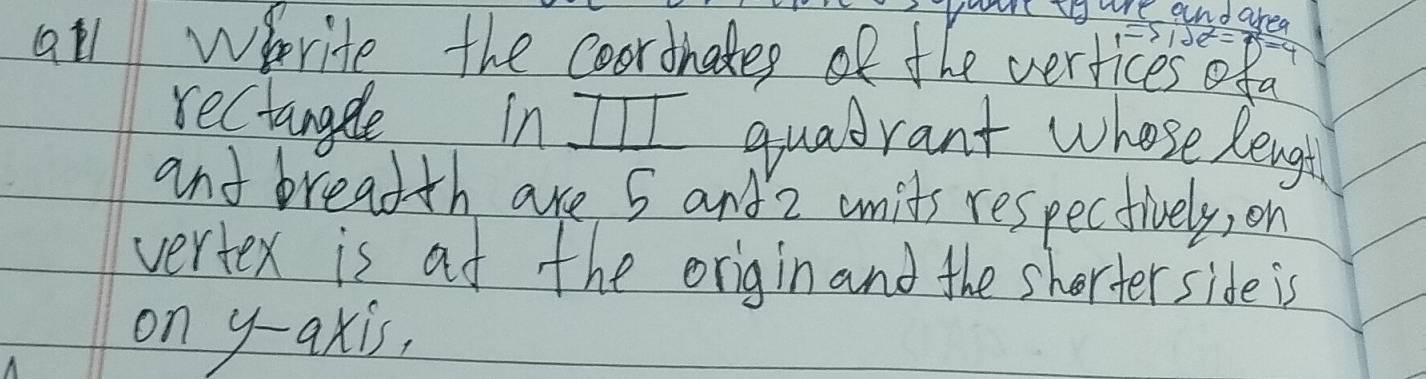 and area
Write the coordnates of the vertices of a
rectangle in III quadrant whose length
and breadth are 5 and 2 units respectively, on
vertex is at the origin and the shorter side is
on y-axis,